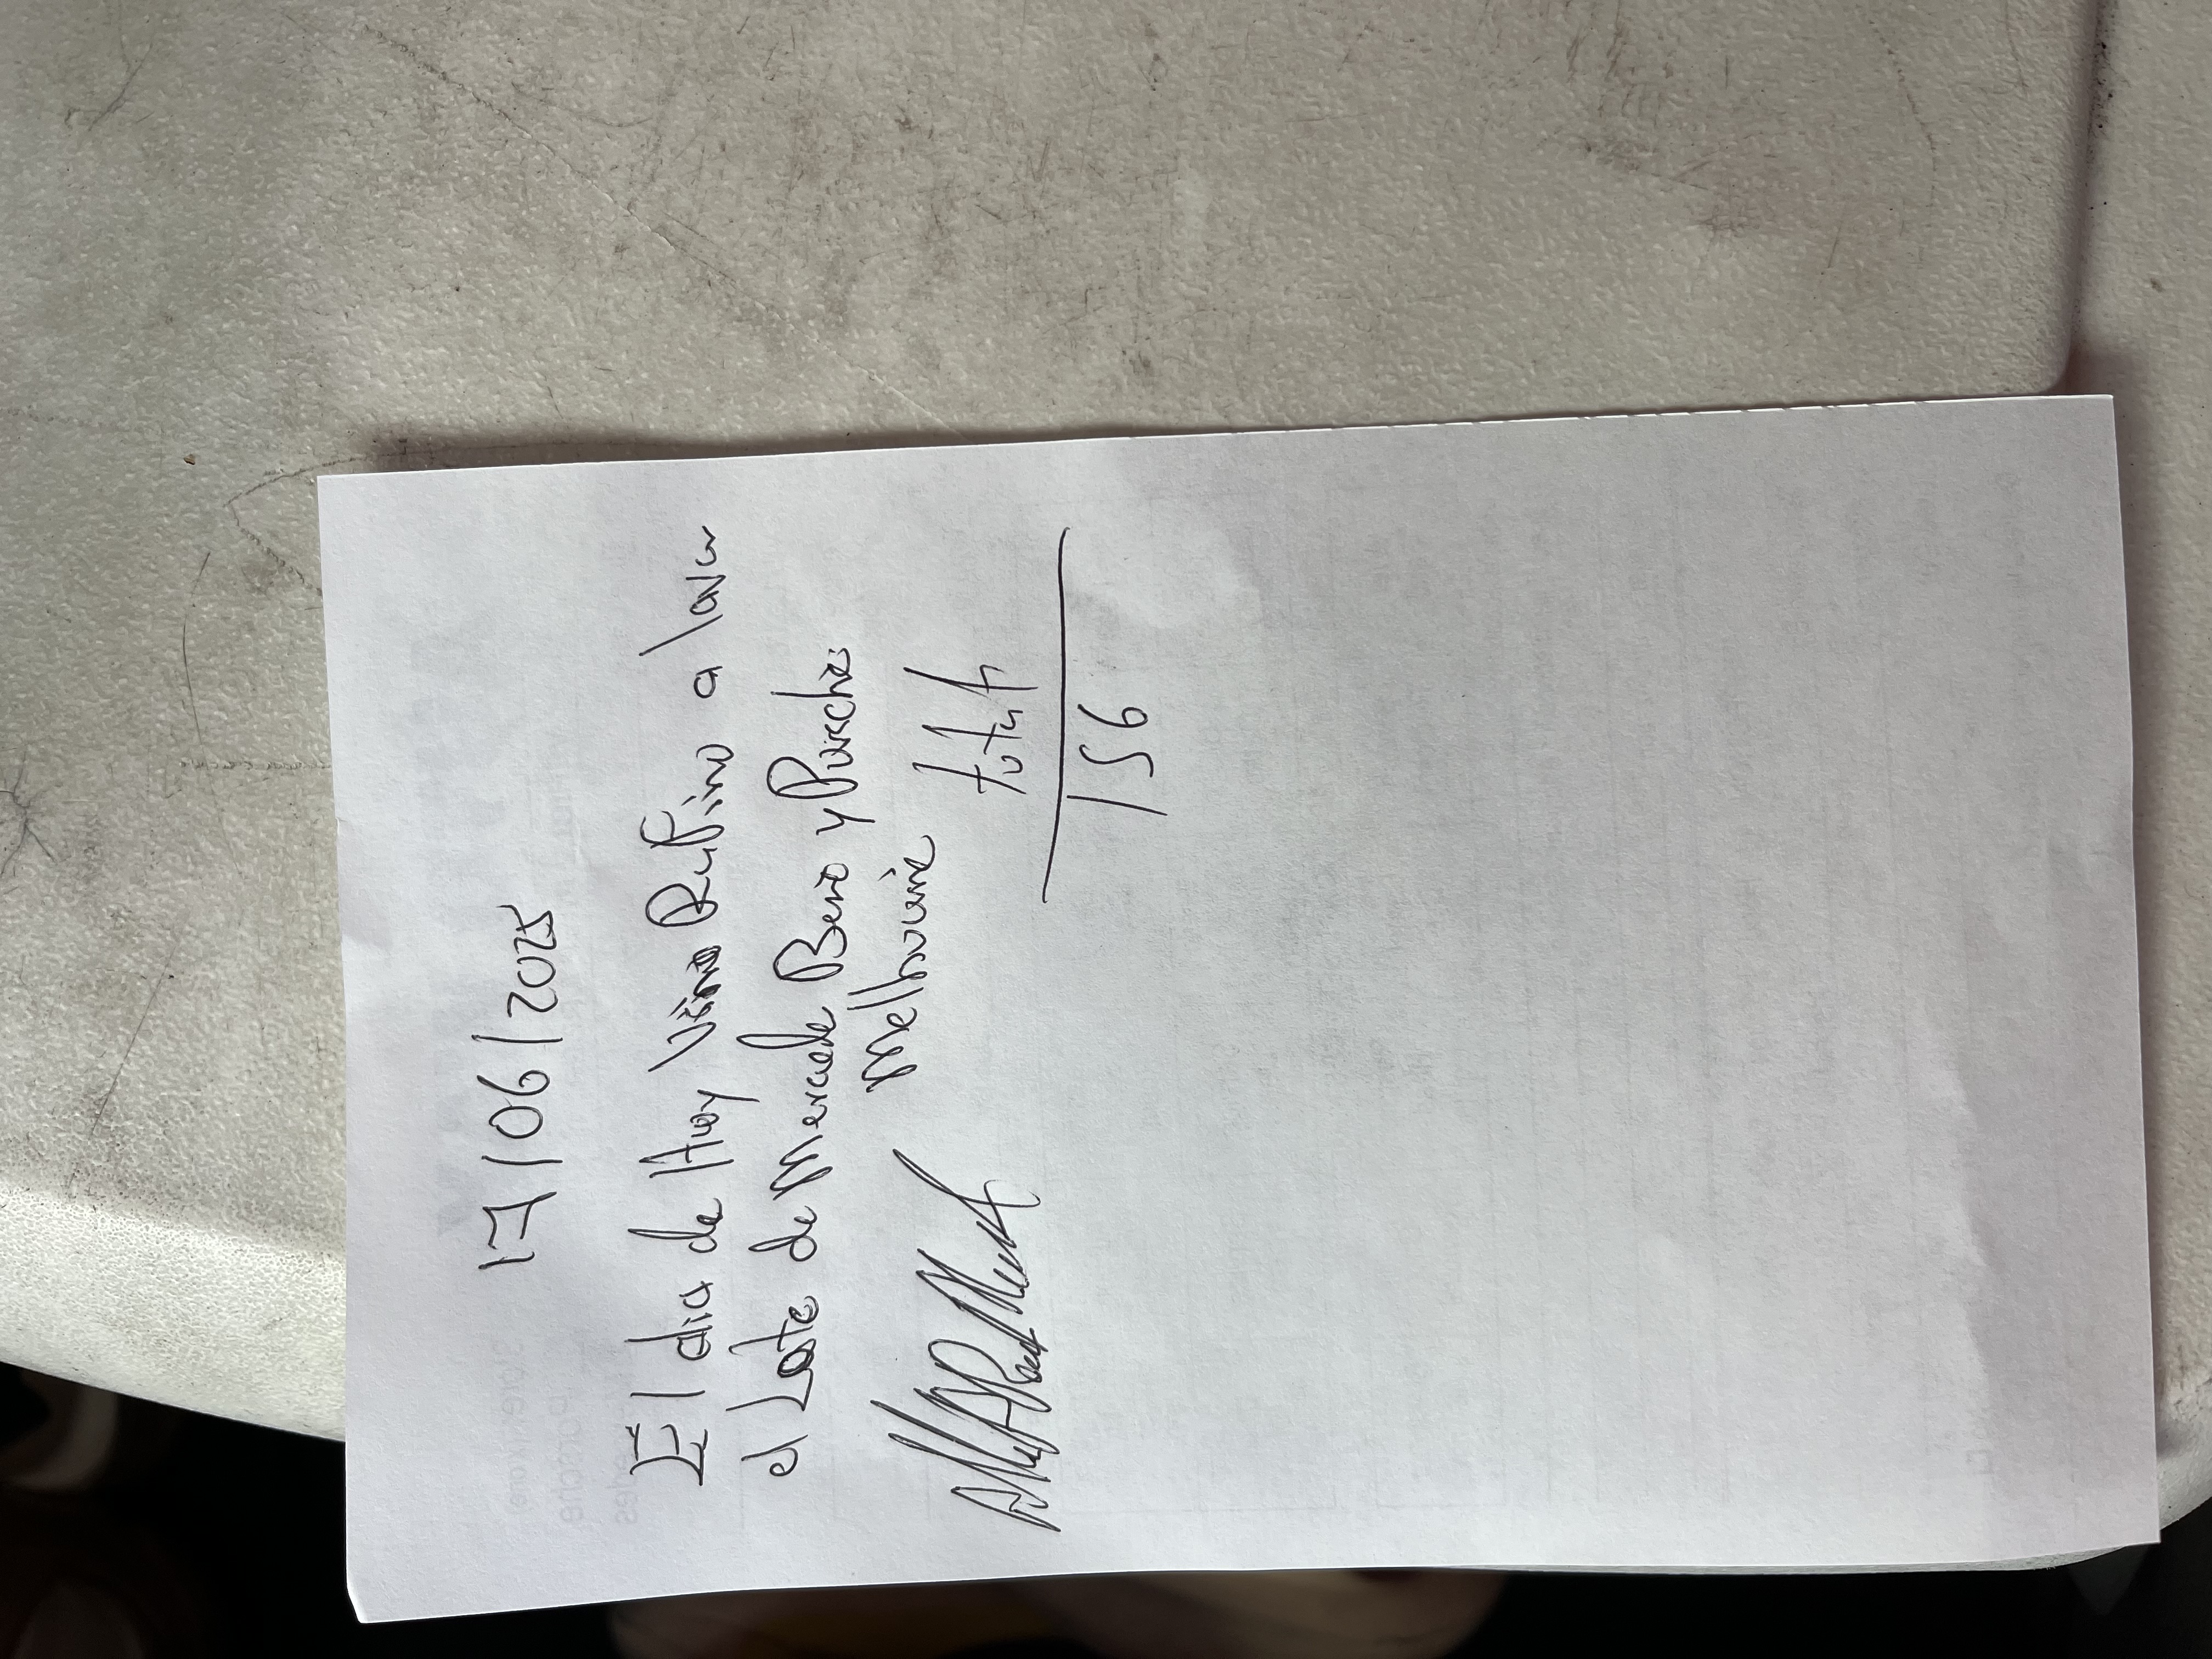 17/06/2025
El dia de Hoy Vino Rufino a lavar
el Lote de Mercede Benz y Pursche
Melbourne
total
156